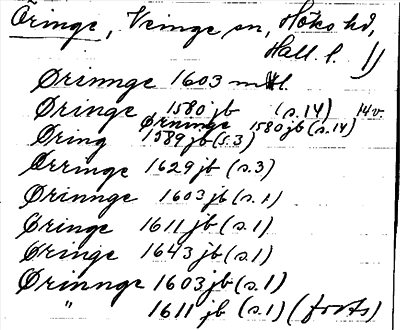 Öringe, Veinge sn, Höks hd,
Hall. l. 1)
Ørinnge 1603 mtl.
Øringe 1580 jb (s.14) 14v.
Ørninge 1580 jb (s.14)
Øring 1589 jb (s.3)
Ørringe 1629 jb (s.3)
Ørinnge 1603 jb (s.1)
Øringe 1611 jb (s.1)
Øringe 1643 jb (s.1)
Ørinnge 1603 jb (s.1)
" 1611 jb (s.1) (forts)